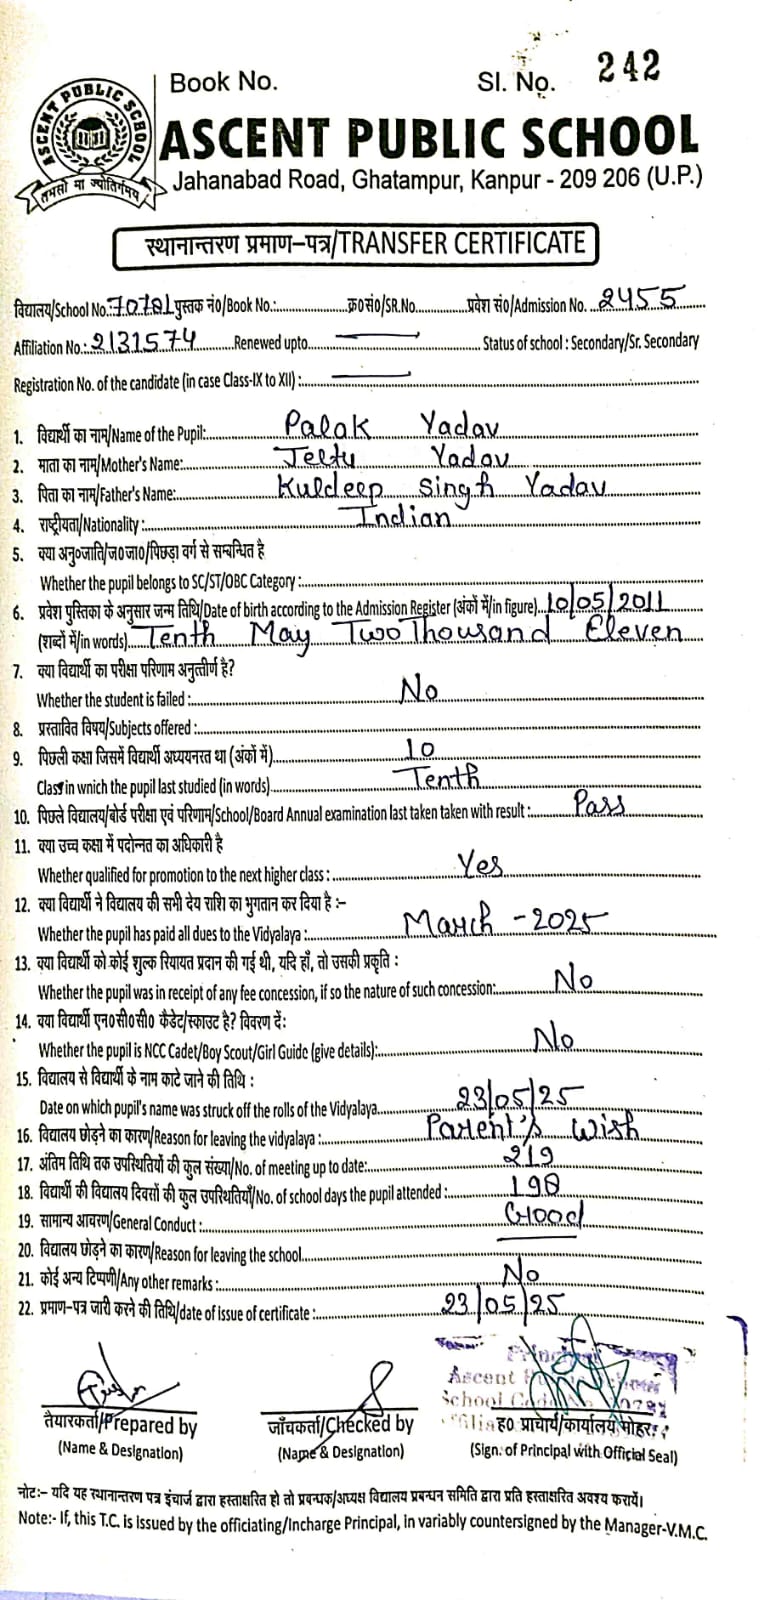 Book No. Sl. No. 242
ASCENT PUBLIC SCHOOL
तमसो मा ज्योतिर्गमय
ASCENT PUBLIC SCHOOL
Jahanabad Road, Ghatampur, Kanpur - 209 206 (U.P.)
स्थानान्तरण प्रमाण–पत्र/TRANSFER CERTIFICATE
विद्यालय/School No.:70781 पुस्तक नं0/Book No.: क्र0सं0/SR.No. प्रवेश सं0/Admission No. 2455
Affiliation No.: 2131574 Renewed upto. — Status of school : Secondary/Sr. Secondary
Registration No. of the candidate (in case Class-IX to XII) : —
1. विद्यार्थी का नाम/Name of the Pupil: Palak Yadav
2. माता का नाम/Mother's Name: Jeetu Yadav
3. पिता का नाम/Father's Name: Kuldeep Singh Yadav
4. राष्ट्रीयता/Nationality : Indian
5. क्या अनु०जाति/ज०जा०/पिछड़ा वर्ग से सम्बन्धित है
Whether the pupil belongs to SC/ST/OBC Category :
6. प्रवेश पुस्तिका के अनुसार जन्म तिथि/Date of birth according to the Admission Register (अंकों में/in figure) 10/05/2011
(शब्दों में/in words) Tenth May Two Thousand Eleven
7. क्या विद्यार्थी का परीक्षा परिणाम अनुत्तीर्ण है?
Whether the student is failed : No
8. प्रस्तावित विषय/Subjects offered :
9. पिछली कक्षा जिसमें विद्यार्थी अध्ययनरत था (अंकों में) 10
Class in wnich the pupil last studied (in words) Tenth
10. पिछले विद्यालय/बोर्ड परीक्षा एवं परिणाम/School/Board Annual examination last taken taken with result : Pass
11. क्या उच्च कक्षा में पदोन्नत का अधिकारी है
Whether qualified for promotion to the next higher class : Yes
12. क्या विद्यार्थी ने विद्यालय की सभी देय राशि का भुगतान कर दिया है :–
Whether the pupil has paid all dues to the Vidyalaya : March - 2025
13. क्या विद्यार्थी को कोई शुल्क रियायत प्रदान की गई थी, यदि हाँ, तो उसकी प्रकृति :
Whether the pupil was in receipt of any fee concession, if so the nature of such concession: No
14. क्या विद्यार्थी एन०सी०सी० कैडेट/स्काउट है? विवरण दें:
Whether the pupil is NCC Cadet/Boy Scout/Girl Guide (give details): No
15. विद्यालय से विद्यार्थी के नाम काटे जाने की तिथि :
Date on which pupil's name was struck off the rolls of the Vidyalaya 23/05/25
16. विद्यालय छोड़ने का कारण/Reason for leaving the vidyalaya : Parent's Wish
17. अंतिम तिथि तक उपस्थितियों की कुल संख्या/No. of meeting up to date: 219
18. विद्यार्थी की विद्यालय दिवसों की कुल उपस्थितियाँ/No. of school days the pupil attended : 198
19. सामान्य आचरण/General Conduct : Good
20. विद्यालय छोड़ने का कारण/Reason for leaving the school
21. कोई अन्य टिप्पणी/Any other remarks : No
22. प्रमाण–पत्र जारी करने की तिथि/date of issue of certificate : 23/05/25
Principal
Ascent
School
तैयारकर्ता/Prepared by जाँचकर्ता/Checked by ह० प्राचार्य/कार्यालय मोहर
(Name & Designation) (Name & Designation) (Sign. of Principal with Official Seal)
नोट:– यदि यह स्थानान्तरण पत्र इंचार्ज द्वारा हस्ताक्षरित हो तो प्रबन्धक/अध्यक्ष विद्यालय प्रबन्धन समिति द्वारा प्रति हस्ताक्षरित अवश्य करायें।
Note:- If, this T.C. is Issued by the officiating/Incharge Principal, in variably countersigned by the Manager-V.M.C.